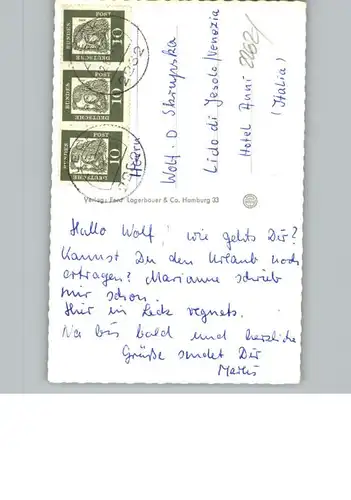 10
DEUTSCHE
BUNDES
POST
10
DEUTSCHE
BUNDES
POST
10
DEUTSCHE
BUNDES
POST
Herrn
Wolf. D Skrupska
Lido di Jesolo/Venezia
Hotel Anni
(Italia)
Verlag: Ferd. Lagerbauer & Co. Hamburg 33
Hallo Wolf! wie gehts Dir?
Kannst Du den Urlaub noch
ertragen? Marianne schrieb
mir schon.
Hier in Leck regnets.
Na bis bald und herzliche
Grüße sendet Dir